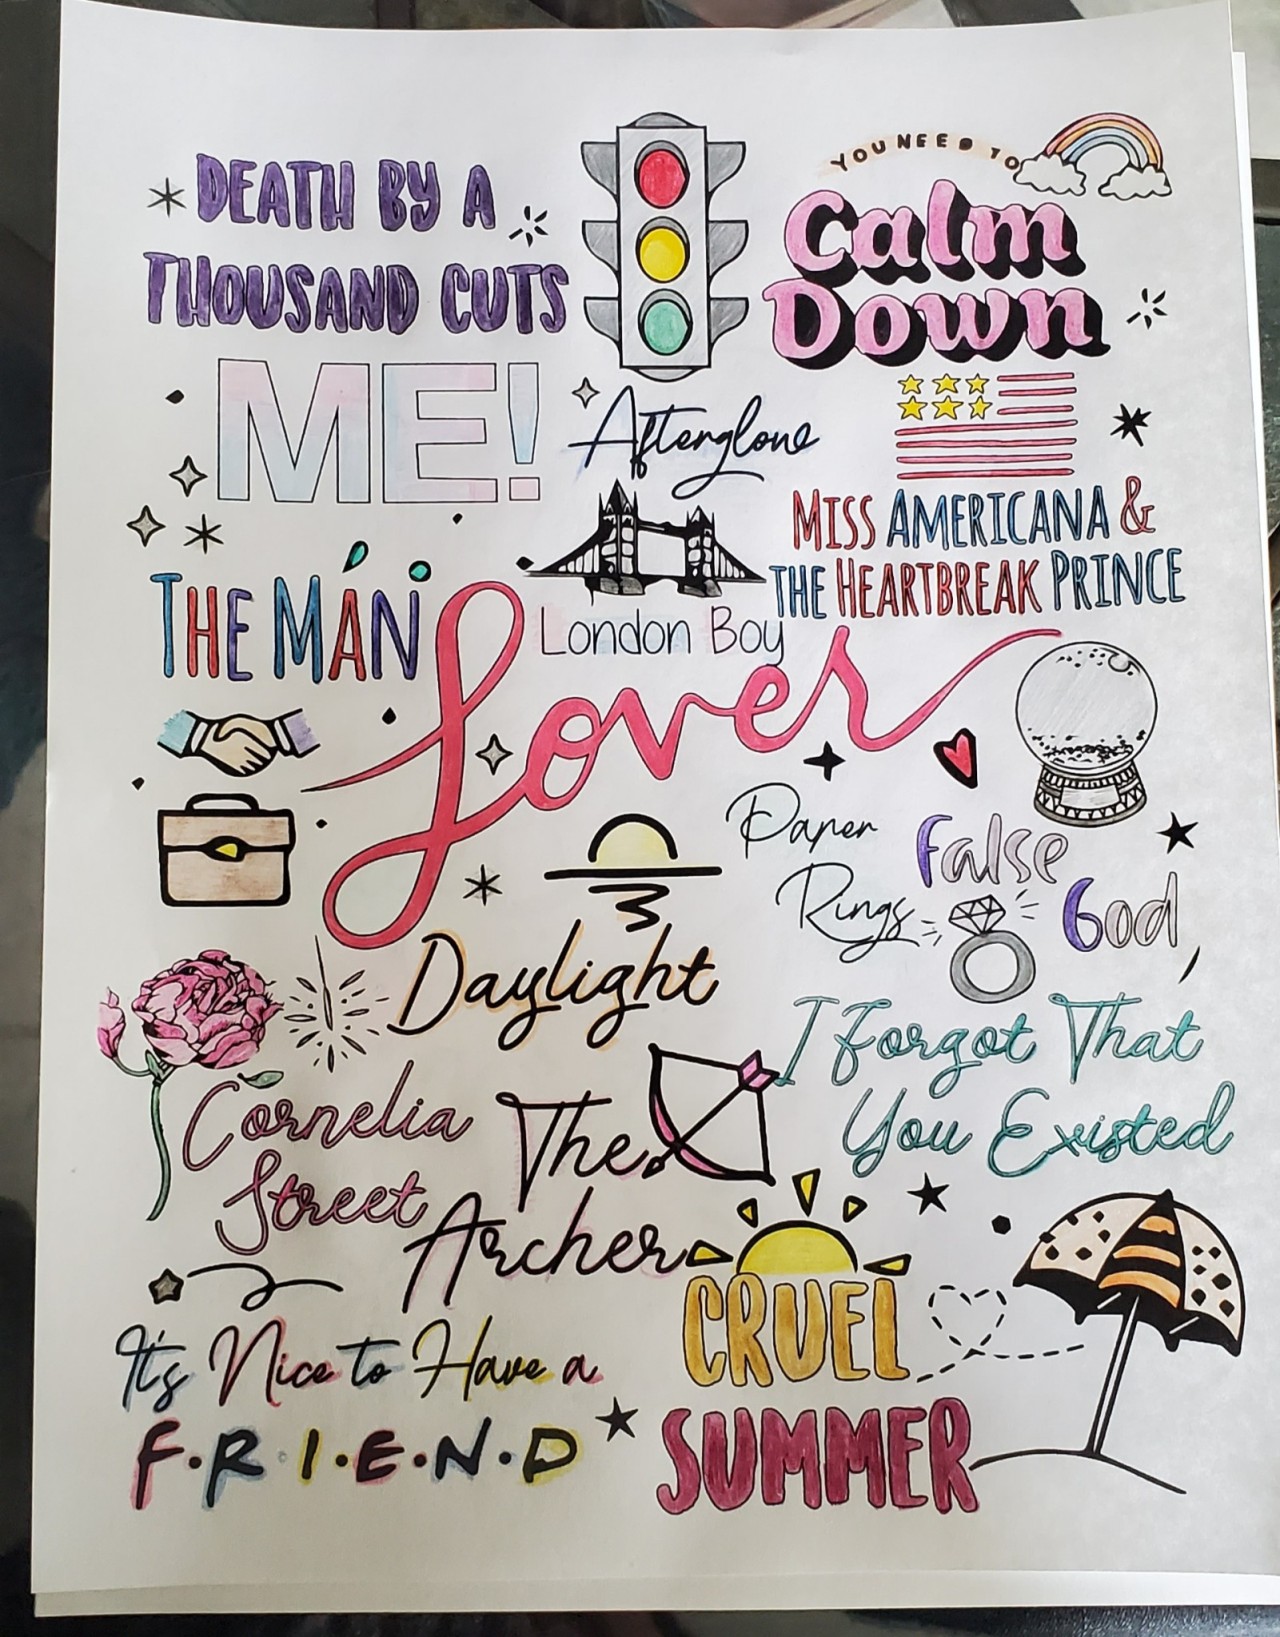 DEATH BY A
THOUSAND CUTS
YOU NEED TO
Calm
Down
ME!
Afterglow
MISS AMERICANA &
THE HEARTBREAK PRINCE
THE MAN
London Boy
Lover
Paper
Rings
False
God
Daylight
I Forgot That
You Existed
Cornelia
Street
The
Archer
CRUEL
SUMMER
It's Nice to Have a
F.R.I.E.N.D